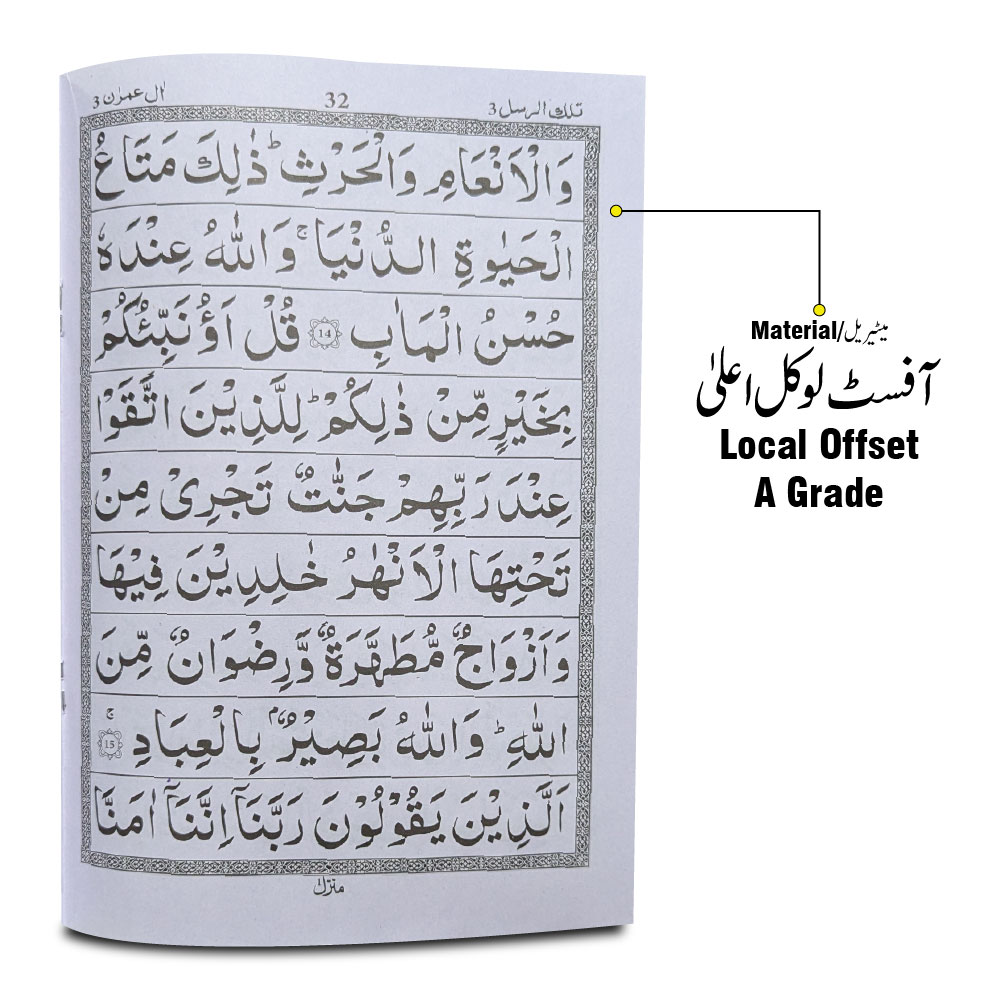 تلك الرسل 3
32
اٰل عمرٰن 3
وَالْاَنْعَامِ وَالْحَرْثِ ؕ ذٰلِكَ مَتَاعُ
الْحَيٰوةِ الدُّنْيَا ۚ وَاللّٰهُ عِنْدَهٗ
حُسْنُ الْمَاٰبِ 14 قُلْ اَؤُنَبِّئُكُمْ
بِخَيْرٍ مِّنْ ذٰلِكُمْ ؕ لِلَّذِيْنَ اتَّقَوْا
عِنْدَ رَبِّهِمْ جَنّٰتٌ تَجْرِىْ مِنْ
تَحْتِهَا الْاَنْهٰرُ خٰلِدِيْنَ فِيْهَا
وَاَزْوَاجٌ مُّطَهَّرَةٌ وَّرِضْوَانٌ مِّنَ
اللّٰهِ ؕ وَاللّٰهُ بَصِيْرٌۢ بِالْعِبَادِ ۚ 15
اَلَّذِيْنَ يَقُوْلُوْنَ رَبَّنَآ اِنَّنَآ اٰمَنَّا
منزل
Material/میٹیریل
آفسٹ لوکل اعلیٰ
Local Offset
A Grade